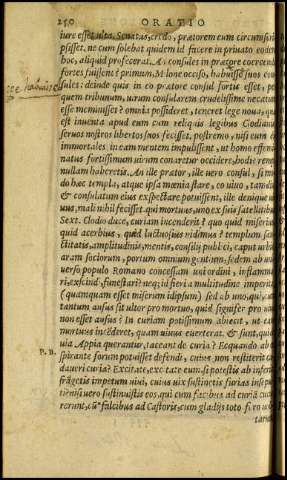 250 ORATIO
iure esset ulta. Senatus, credo, praetorem eum circumscri
psisset. ne cum solebat quidem id facere in privato eodem
hoc, aliquid profecerat. An consules in praetore coercendo
fortes fuissent? primum, Milone occiso, habuisset suos con
sules: deinde quis in eo praetore consul fortis esset, per
quem tribunum, virum consularem crudelissime vexatum
esse meminisset? omnia possideret, teneret lege noua, quae
est inuenta apud eum cum reliquis legibus Clodianis
seruos nostros libertos suos fecisset. postremo, nisi eum dii
immortales in eam mentem impulissent, ut homo effemi
natus fortissimum uirum conaretur occidere, hodie remp.
nullam haberetis. An ille praetor, ille uero consul, si mo
do haec templa, atque ipsa moenia stare, eo uiuo, tamdiu
& consulatum eius exspectare potuissent, ille denique ui
uus, mali nihil fecisset, qui mortuus, uno ex suis satellitibus
Sext. Clodio duce, curiam incenderit? quo quid miserius
quid acerbius, quid luctuosius uidimus? templum san
ctitatis, amplitudinis, mentis, consilij publici, caput urbis
aram sociorum, portum omnium gentium, sedem ab uni
uerso populo Romano concessam uni ordini, inflamma
ri, exscindi, funestari? neq; id fieri a multitudine imperita
(quamquam esset miserum id ipsum) sed ab uno, qui, cum
tantum ausus sit ultor pro mortuo, quid signifer pro uiuo
non esset ausus? In curiam potissimum abiecit, ut eam
mortuus incenderet, quam uiuus euerterat. & sunt, qui de
uia Appia querantur, taceant de curia? Et quando ab eo
P. R. spirante forum potuisset defendi, cuius non restiterit ca
daueri curia? Excitate, excitate eum, si potestis ab inferis.
frangetis impetum uiui, cuius uix sustinetis furias insepulti
nisi uero sustinuistis eos, qui cum facibus ad curiam cucur
rerunt, cum falcibus ad Castoris, cum gladijs toto foro uo